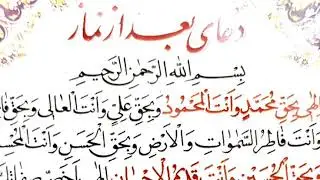 دعای بعد از نماز
بِسْمِ اللهِ الرَّحْمٰنِ الرَّحِيْمِ
اِلٰهِی بِحَقِّ مُحَمَّدٍ وَاَنْتَ الْمَحْمُودُ وَبِحَقِّ عَلِیٍّ وَاَنْتَ الْعَالِی وَبِحَقِّ
وَاَنْتَ فَاطِرُ السَّمٰوَاتِ وَالْاَرْضِ وَبِحَقِّ الْحَسَنِ وَاَنْتَ الْمُحْسِنُ
وَبِحَقِّ الْحُسَيْنِ وَاَنْتَ قَدِيْمُ الْاِحْسَانِ